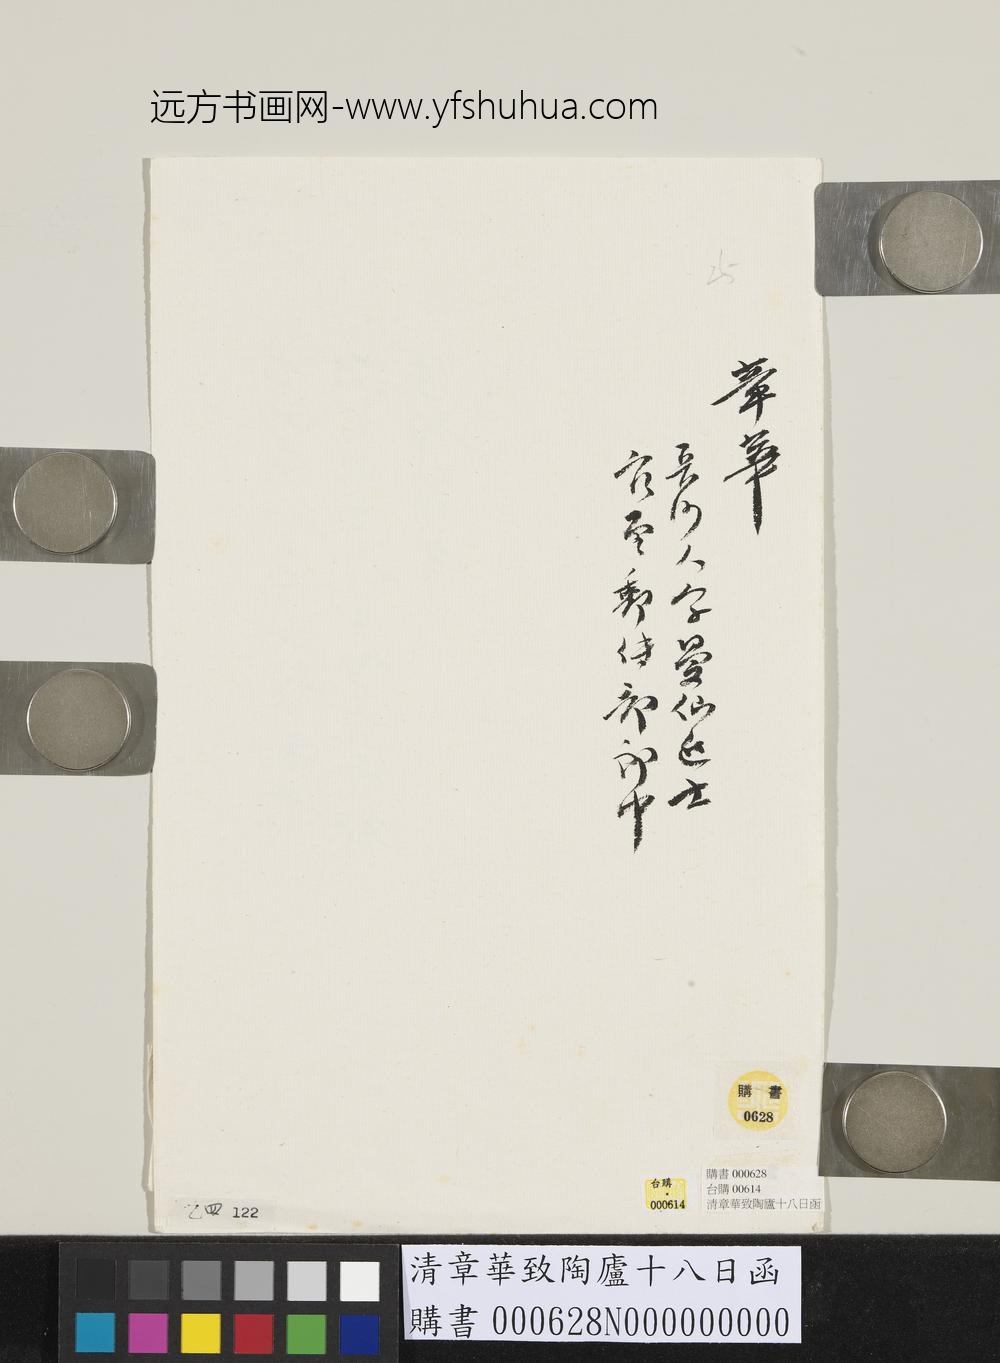 远方书画网-www.yfshuhua.com
章華
長沙人字曼仙進士
官至郵傳部郎中
購書
0628
台購
000614
購書 000628
台購 00614
清章華致陶廬十八日函
乙四 122
清章華致陶廬十八日函
購書 000628N000000000